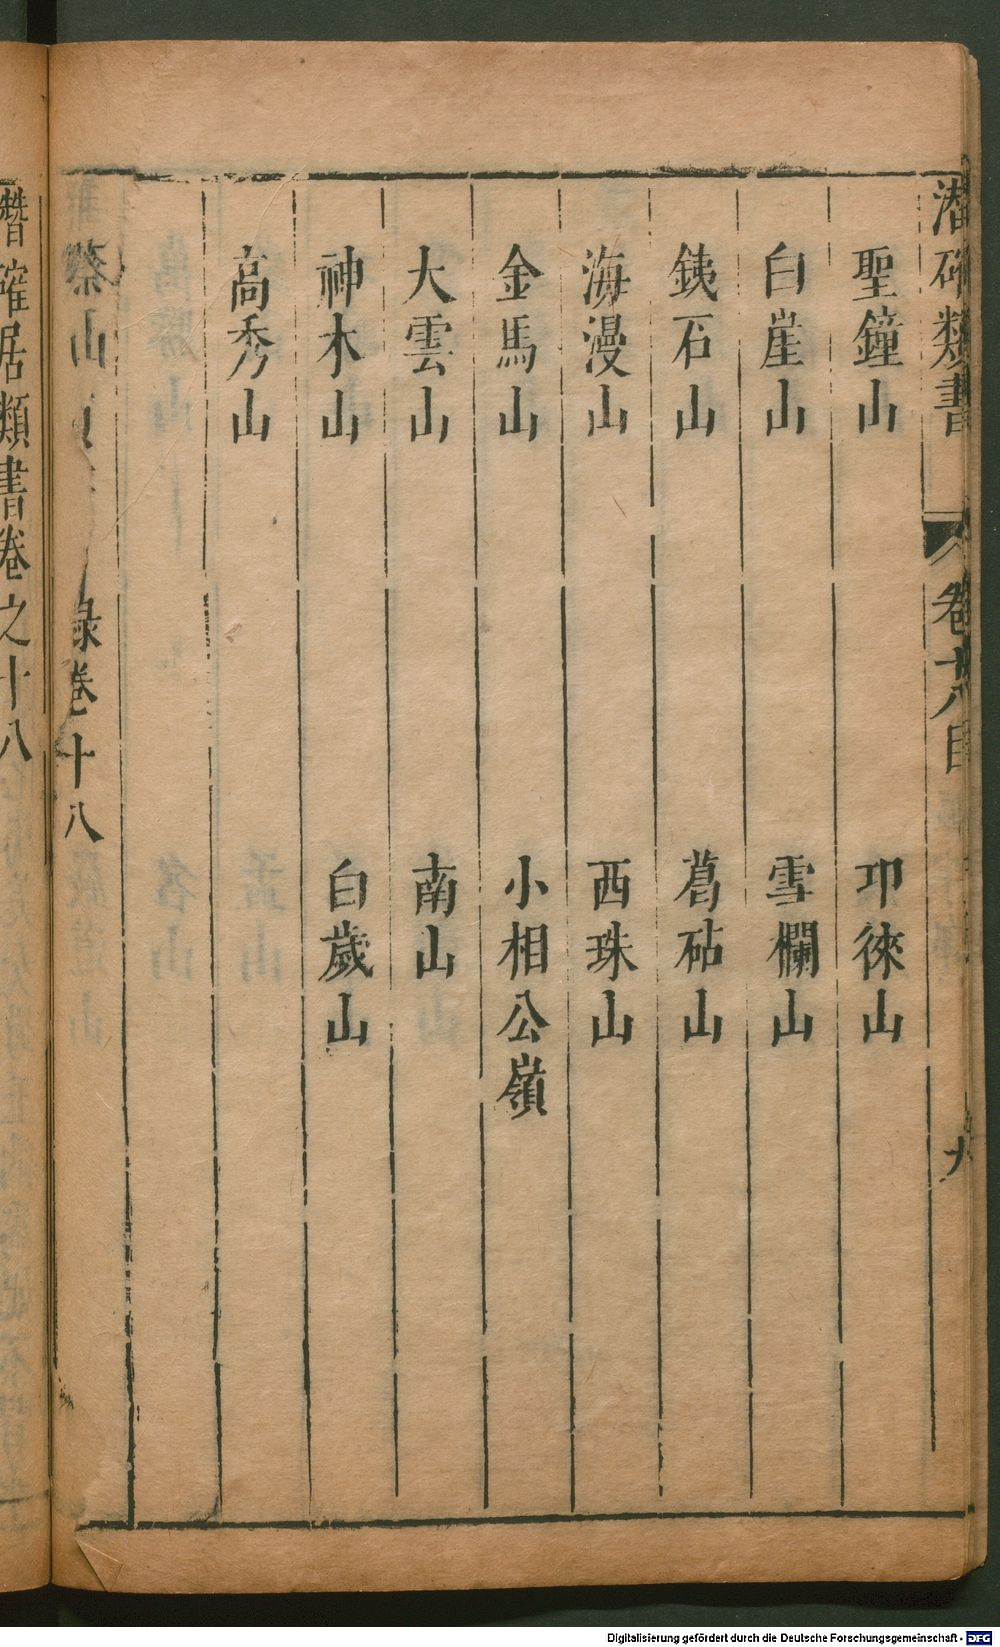 潜確類書
卷十八目
九
聖鐘山
卭徠山
白崖山
雪欄山
銕石山
葛砧山
海漫山
西珠山
金馬山
小相公嶺
大雲山
南山
神木山
白歲山
高秀山
蔡山
錄卷十八
潛確居類書卷之十八
Digitalisierung gefördert durch die Deutsche Forschungsgemeinschaft - DFG